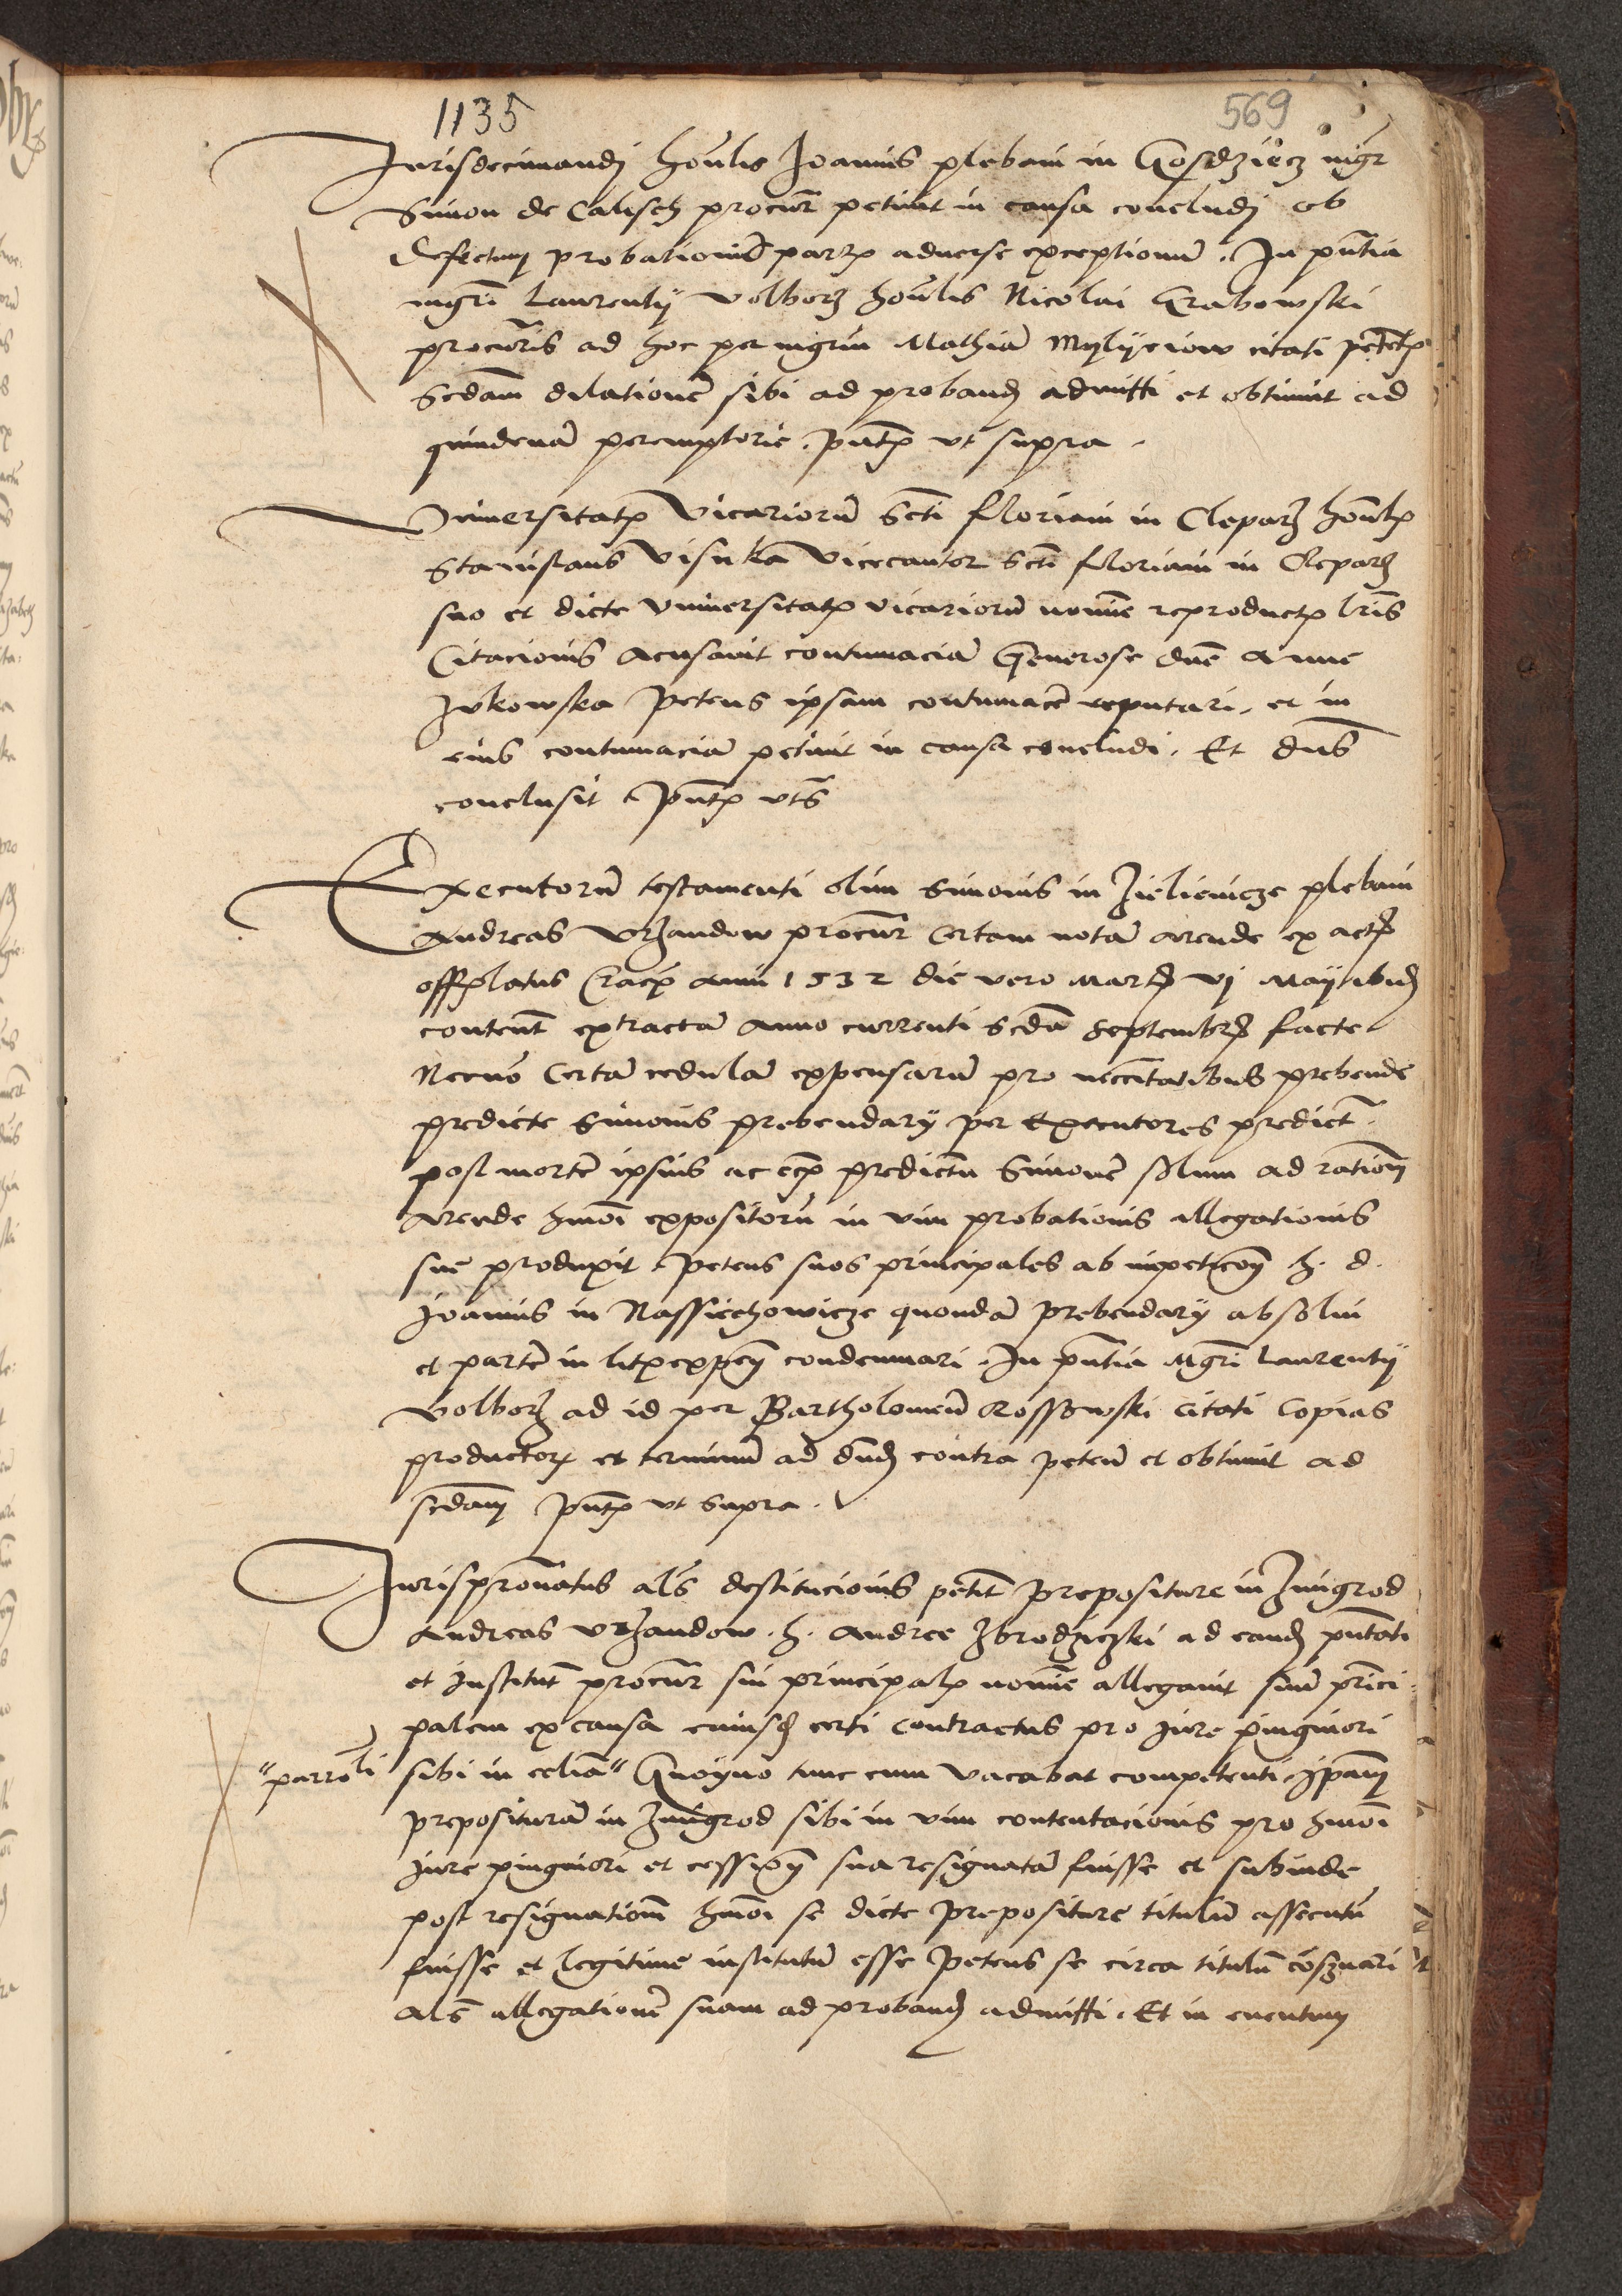 1135 569
Jurisdecimandj honlis Joannis plebani in Gosdziecz mgr
Simon de Calisch procur petiuit in causa concludj ob
defectum probationum partis aduerse exceptionum . In pntia
mgri Laurentij Volborz honlis Nicolai Grabowski
procuris ad hoc per mgrm Mathiam Mylyeiow citati petentis
Scdam dilationem sibi ad proband admitti et obtinuit ad
quindenam peremptorie . pntis vt supra .
Vniuersitatis Vicariorum Scti Floriani in Cleparz honlis
Stanislaus Visnka Vicecantor Scti Floriani in Cleparz
suo et dicte Vniuersitatis vicariorum nomine reproductis lris
Citacionis Acusauit contumaciam Generose dne Anne
Zukowska petens ipsam contumacem reputari , et in
eius contumaciam petiuit in causa concludi . Et dns
conclusit . pntis vts
Executorum testamenti olim Simonis in Zielienicze plebani
Andreas Vrzandow procur Certam notam arende ex actis
offlatus Crac Anni 1532 die vero Martis vj Maij ibid
content extractam Anno currenti Scda Septembris facte
Necno Certam cedulam expensarum pro neccitatibus prebende
predicte Simonis prebendarij per Executores predict
post mortem ipsius ac ecs predictum Simonem solum ad rationem
Arende hmoi expositorum in vim probationis allegationis
sue produxit . Petens suos principales ab impeticoe h . d .
Joannis in Rassiechowicze quondam prebendarij absolui
et partem in litis expen condemnari . In pntia Mgri Laurentij
Volborz ad id per Bartholomeum Kossowski citati Copias
productor et terminum ad dnd contra peten et obtinuit ad
scdam pntis vt supra .
Jurispronatus als destitucionis petit prepositure in Zmigrod
Andreas Vrzandow . h . Andree Zbrodziczki ad eand pntati
et Institut procur sui principalis nomine allegauit suum princi
palem ex causa cuiusd certi contractus pro Jure pinguiori
"parroli sibi in eccliam" Gnoyno tunc cum vacabat competenti ipsam
preposituram in Zmigrod sibi in vim contentacionis pro hmoi
Jure pinguiori et cessione sua resignatam fuisse et subinde
post resignationem hmoi se dicte prepositure titulum assecutum
fuisse et legitime institutum esse Petens se circa titulum conseruari
Als allegationem suam ad proband admitti . Et in euentum